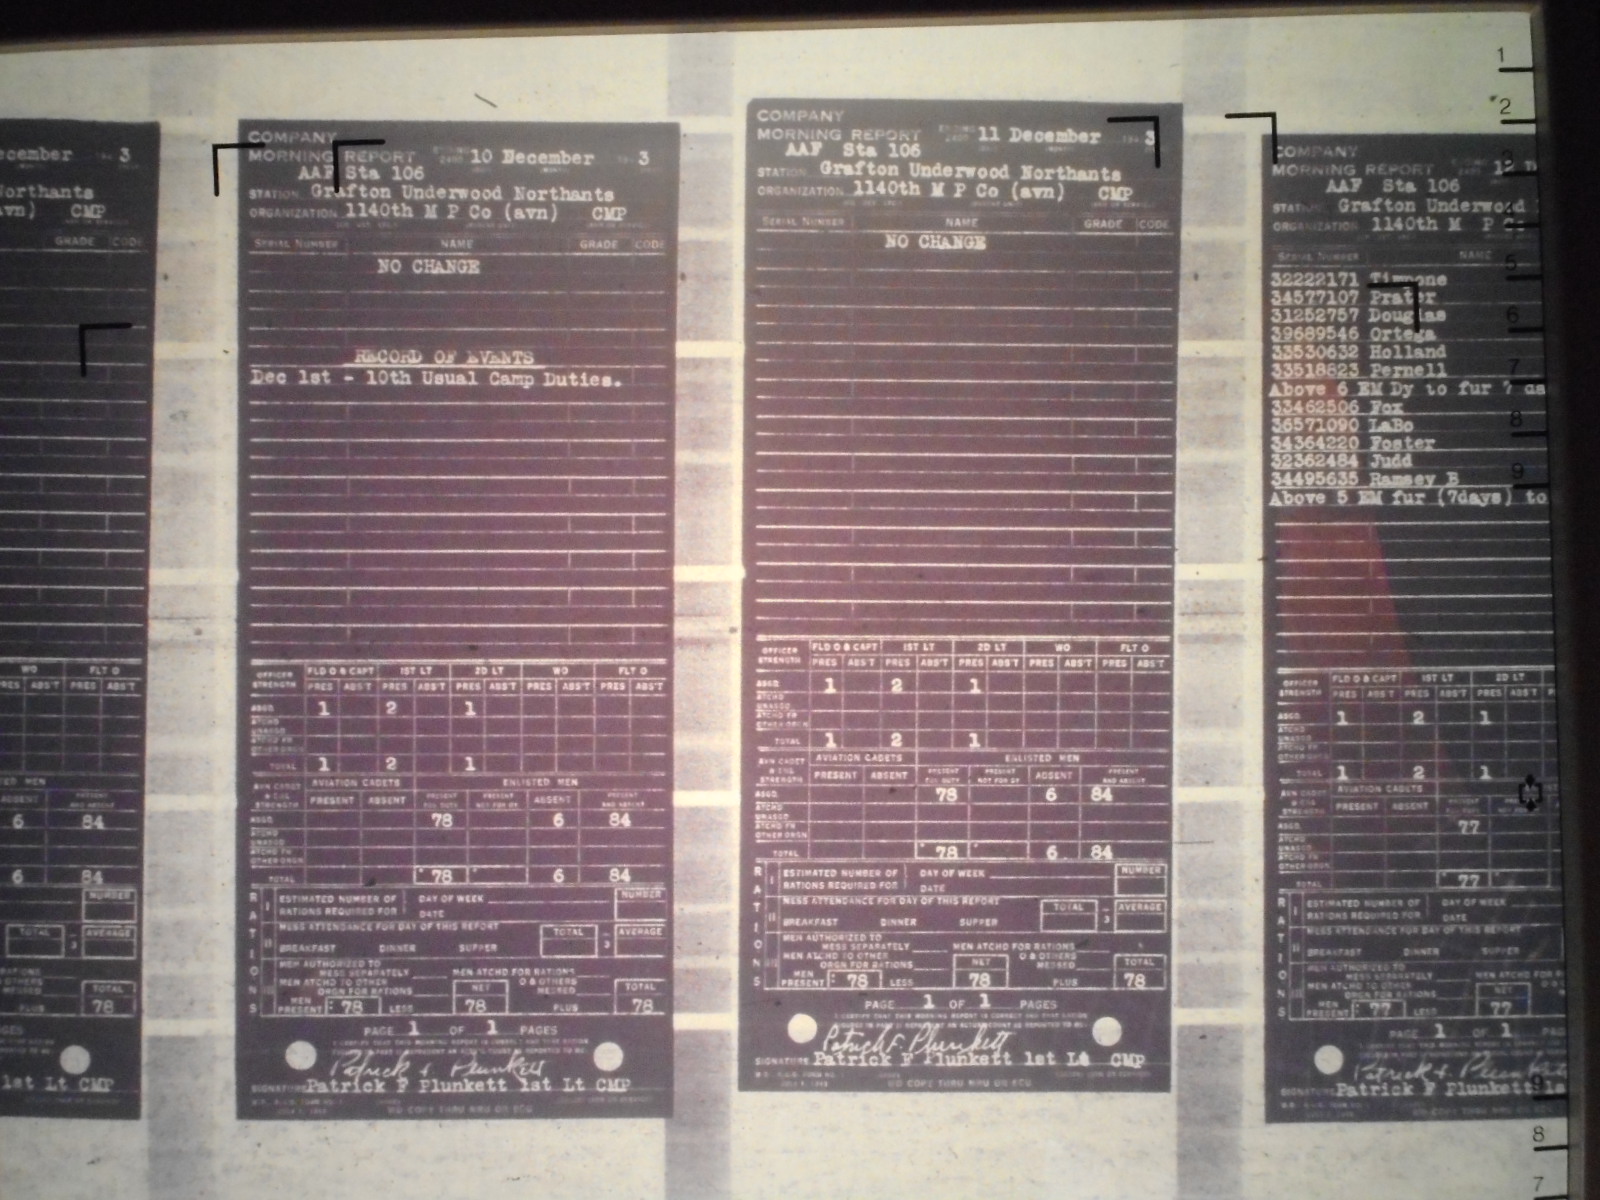 ecember 3
orthants
vn) CMP
GRADE CODE
WO FLT O
PRES ABS'T PRES ABS'T
ED MEN
ABSENT PRESENT AND ABSENT
6 84
6 84
NUMBER
TOTAL AVERAGE
3
RATIONS
TOTAL
PLUS 78
GES
1st Lt CMP
COMPANY
MORNING REPORT ENDING 2400 10 December 194 3
AAF Sta 106
STATION Grafton Underwood Northants
ORGANIZATION 1140th M P Co (avn) CMP
SERIAL NUMBER NAME GRADE CODE
NO CHANGE
RECORD OF EVENTS
Dec 1st - 10th Usual Camp Duties.
OFFICER STRENGTH FLD O & CAPT 1ST LT 2D LT WO FLT O
PRES ABS'T PRES ABS'T PRES ABS'T PRES ABS'T PRES ABS'T
ASGD. 1 2 1
ATCHD UNASGD
ATCHD FR OTHER ORGN
TOTAL 1 2 1
AVN CADET & ENL STRENGTH AVIATION CADETS ENLISTED MEN
PRESENT ABSENT PRESENT FOR DUTY PRESENT NOT FOR DY ABSENT PRESENT AND ABSENT
ASGD. 78 6 84
ATCHD UNASGD
ATCHD FR OTHER ORGN
TOTAL 78 6 84
RATIONS
I ESTIMATED NUMBER OF RATIONS REQUIRED FOR DAY OF WEEK NUMBER
DATE
II MESS ATTENDANCE FOR DAY OF THIS REPORT TOTAL AVERAGE
BREAKFAST DINNER SUPPER 3
III MEN AUTHORIZED TO MESS SEPARATELY MEN ATCHD FOR RATIONS
MEN ATCHD TO OTHER ORGN FOR RATIONS NET O & OTHERS MESSED TOTAL
MEN PRESENT: 78 LESS 78 PLUS 78
PAGE 1 OF 1 PAGES
Patrick F Plunkett
SIGNATURE Patrick F Plunkett 1st Lt CMP
COMPANY
MORNING REPORT ENDING 2400 11 December 194 3
AAF Sta 106
STATION Grafton Underwood Northants
ORGANIZATION 1140th M P Co (avn) CMP
SERIAL NUMBER NAME GRADE CODE
NO CHANGE
OFFICER STRENGTH FLD O & CAPT 1ST LT 2D LT WO FLT O
PRES ABS'T PRES ABS'T PRES ABS'T PRES ABS'T PRES ABS'T
ASGD. 1 2 1
ATCHD UNASGD
ATCHD FR OTHER ORGN
TOTAL 1 2 1
AVN CADET & ENL STRENGTH AVIATION CADETS ENLISTED MEN
PRESENT ABSENT PRESENT FOR DUTY PRESENT NOT FOR DY ABSENT PRESENT AND ABSENT
ASGD. 78 6 84
ATCHD UNASGD
ATCHD FR OTHER ORGN
TOTAL 78 6 84
RATIONS
I ESTIMATED NUMBER OF RATIONS REQUIRED FOR DAY OF WEEK NUMBER
DATE
II MESS ATTENDANCE FOR DAY OF THIS REPORT TOTAL AVERAGE
BREAKFAST DINNER SUPPER 3
III MEN AUTHORIZED TO MESS SEPARATELY MEN ATCHD FOR RATIONS
MEN ATCHD TO OTHER ORGN FOR RATIONS NET O & OTHERS MESSED TOTAL
MEN PRESENT: 78 LESS 78 PLUS 78
PAGE 1 OF 1 PAGES
Patrick F. Plunkett
SIGNATURE Patrick F Plunkett 1st Lt CMP
COMPANY
MORNING REPORT 12 D
AAF Sta 106
STATION Grafton Underwood
ORGANIZATION 1140th M P
SERIAL NUMBER NAME
32222171 Timpone
34577107 Prater
31252757 Douglas
39689546 Ortega
33530632 Holland
33518823 Pernell
Above 6 EM Dy to fur 7 da
33462506 Fox
36571090 LaBo
34364220 Foster
32362484 Judd
34495635 Ramsey B
Above 5 EM fur (7days) to
OFFICER STRENGTH FLD O & CAPT 1ST LT 2D LT
PRES ABS'T PRES ABS'T PRES ABS'T
ASGD. 1 2 1
ATCHD UNASGD
TOTAL 1 2 1
AVIATION CADETS
PRESENT ABSENT
ASGD. 77
TOTAL 77
RATIONS
I ESTIMATED NUMBER OF RATIONS REQUIRED FOR DAY OF WEEK
DATE
MESS ATTENDANCE FOR DAY OF THIS REPORT
BREAKFAST DINNER SUPPER
MEN AUTHORIZED TO MESS SEPARATELY
MEN ATCHD TO OTHER ORGN FOR RATIONS NET
MEN PRESENT: 77 LESS 77
PAGE 1 OF 1
Patrick F Plunkett
SIGNATURE Patrick F Plunkett 1s
1
2
3
4
5
6
7
8
9
9
8
7